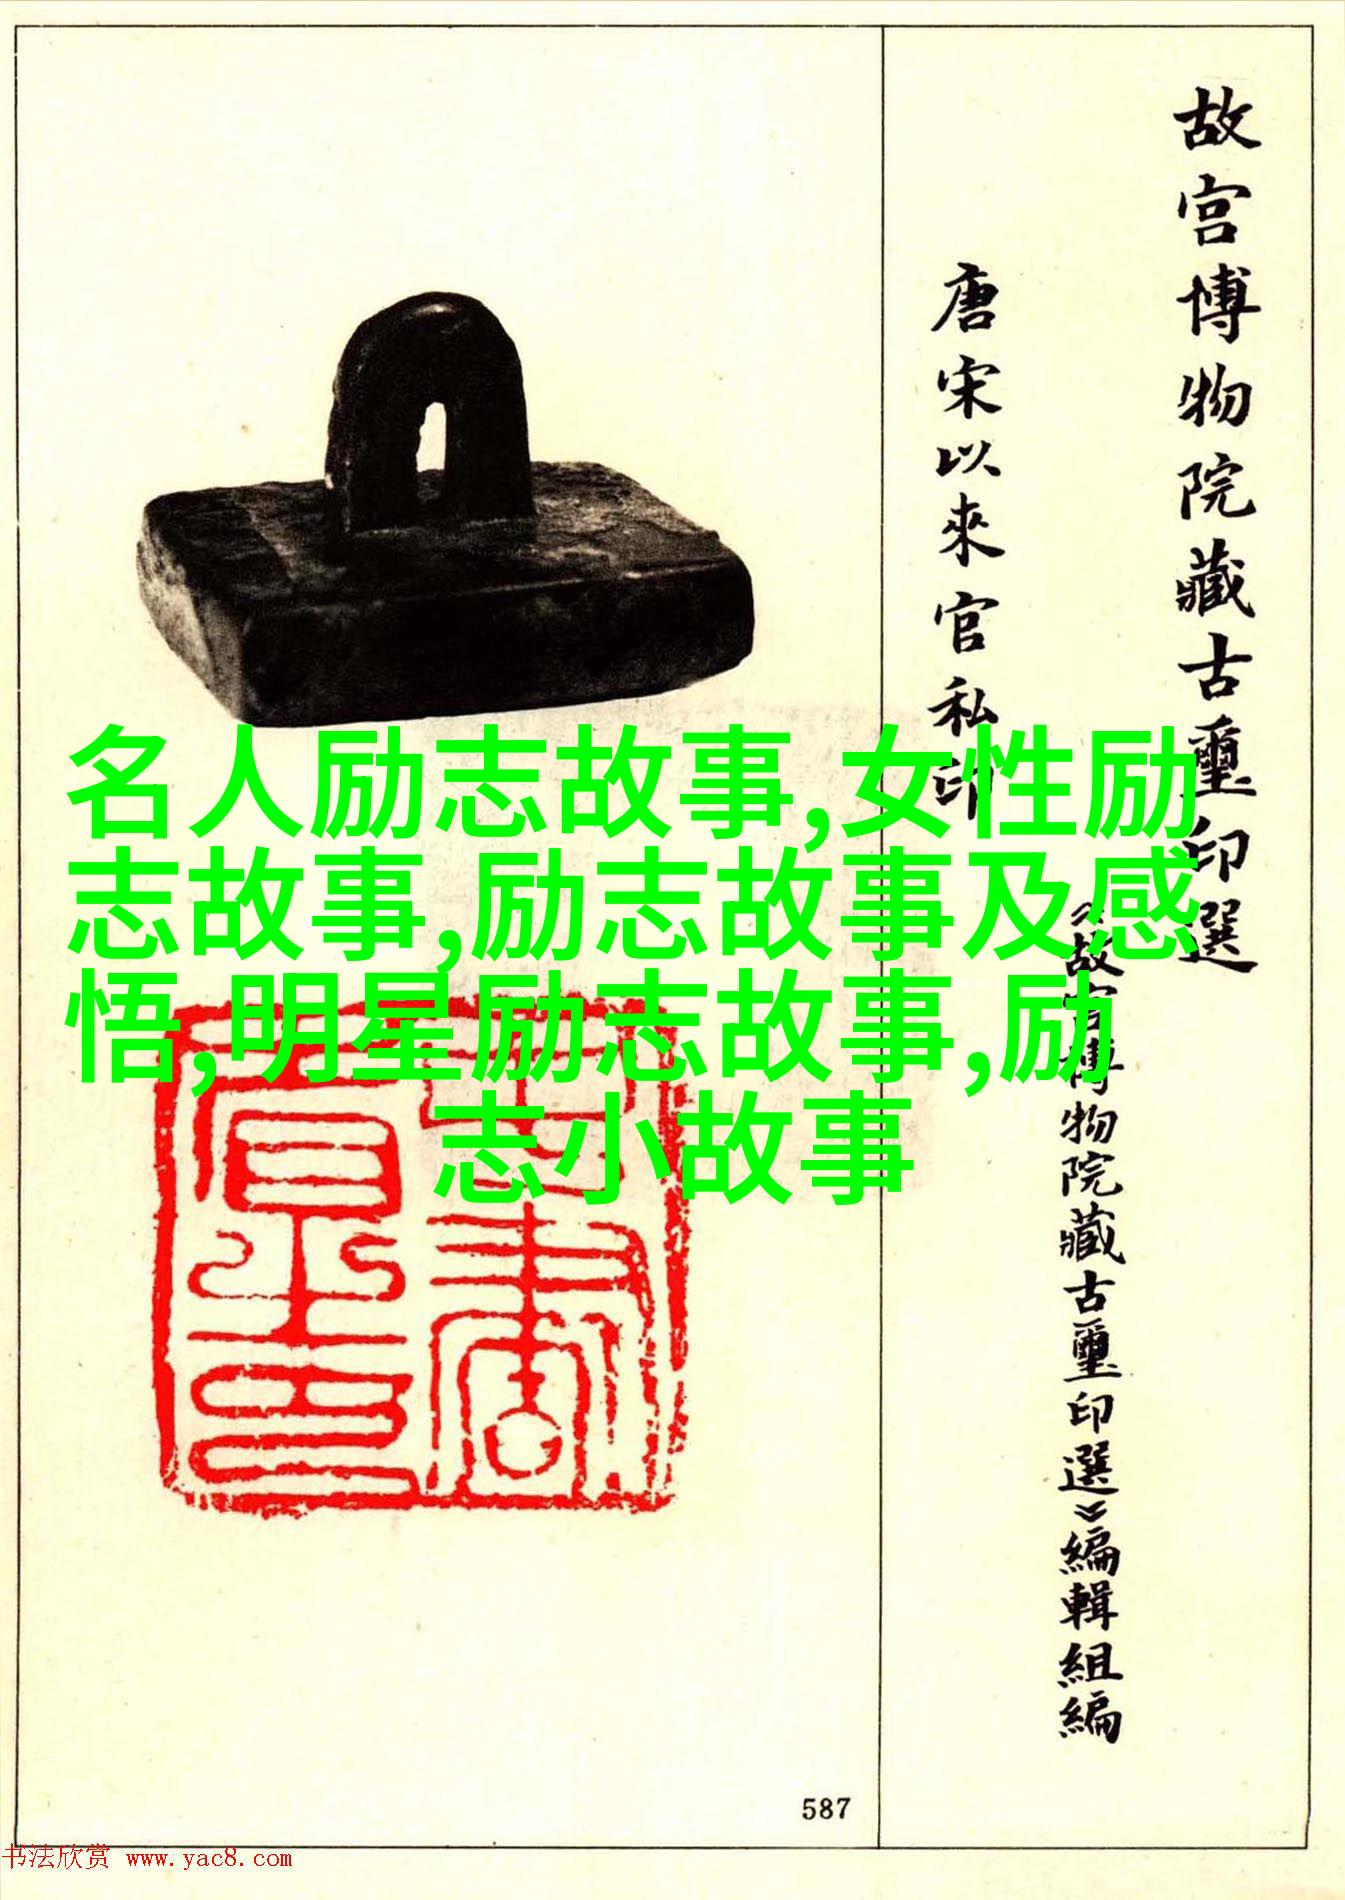 故宫博物院藏古璽印選
唐宋以來官私印
《故宫博物院藏古璽印選》編輯組編
名人励志故事,女性励
志故事,励志故事及感
悟,明星励志故事,励
志小故事
587
书法欣赏 www.yac8.com